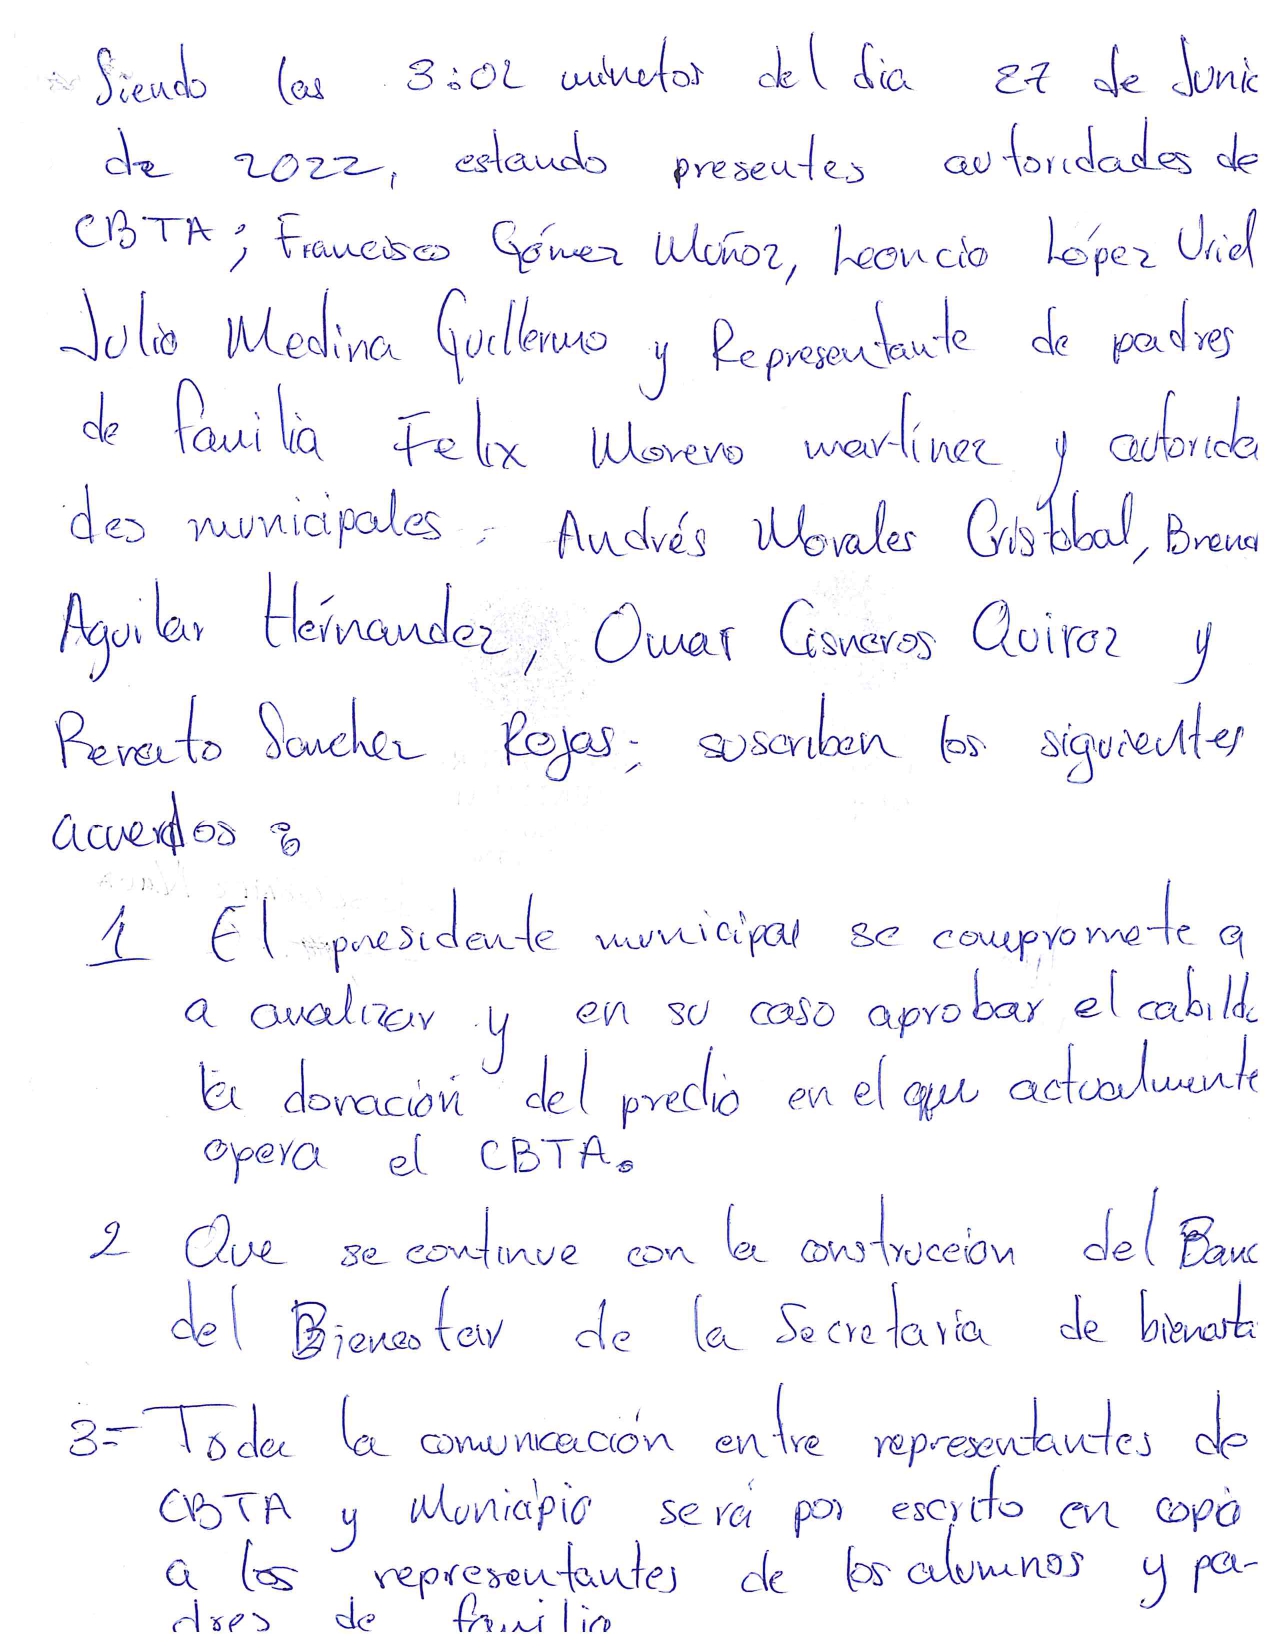 Siendo las 3:02 minutos del dia 27 de Junio
de 2022, estando presentes autoridades de
CBTA; Francisco Gómez Muñoz, Leoncio López Uriel
Julio Medina Guillermo y Representante de padres
de familia Felix Moreno martínez y autorida
des municipales, Andrés Morales Cristobal, Brena
Aguilar Hérnandez, Omar Cisneros Quiroz y
Renato Sanchez Rojas; suscriben los siguientes
acuerdos:
1 El presidente municipal se compromete a
a analizar y en su caso aprobar el cabildo
la donación del predio en el que actualmente
opera el CBTA.
2 Que se continue con la construcción del Banc
del Bienestar de la Secretaria de bienesta
3=- Toda la comunicación entre representantes de
CBTA y Municipio será por escrito en copia
a los representantes de los alumnos y pa-
dres de familia